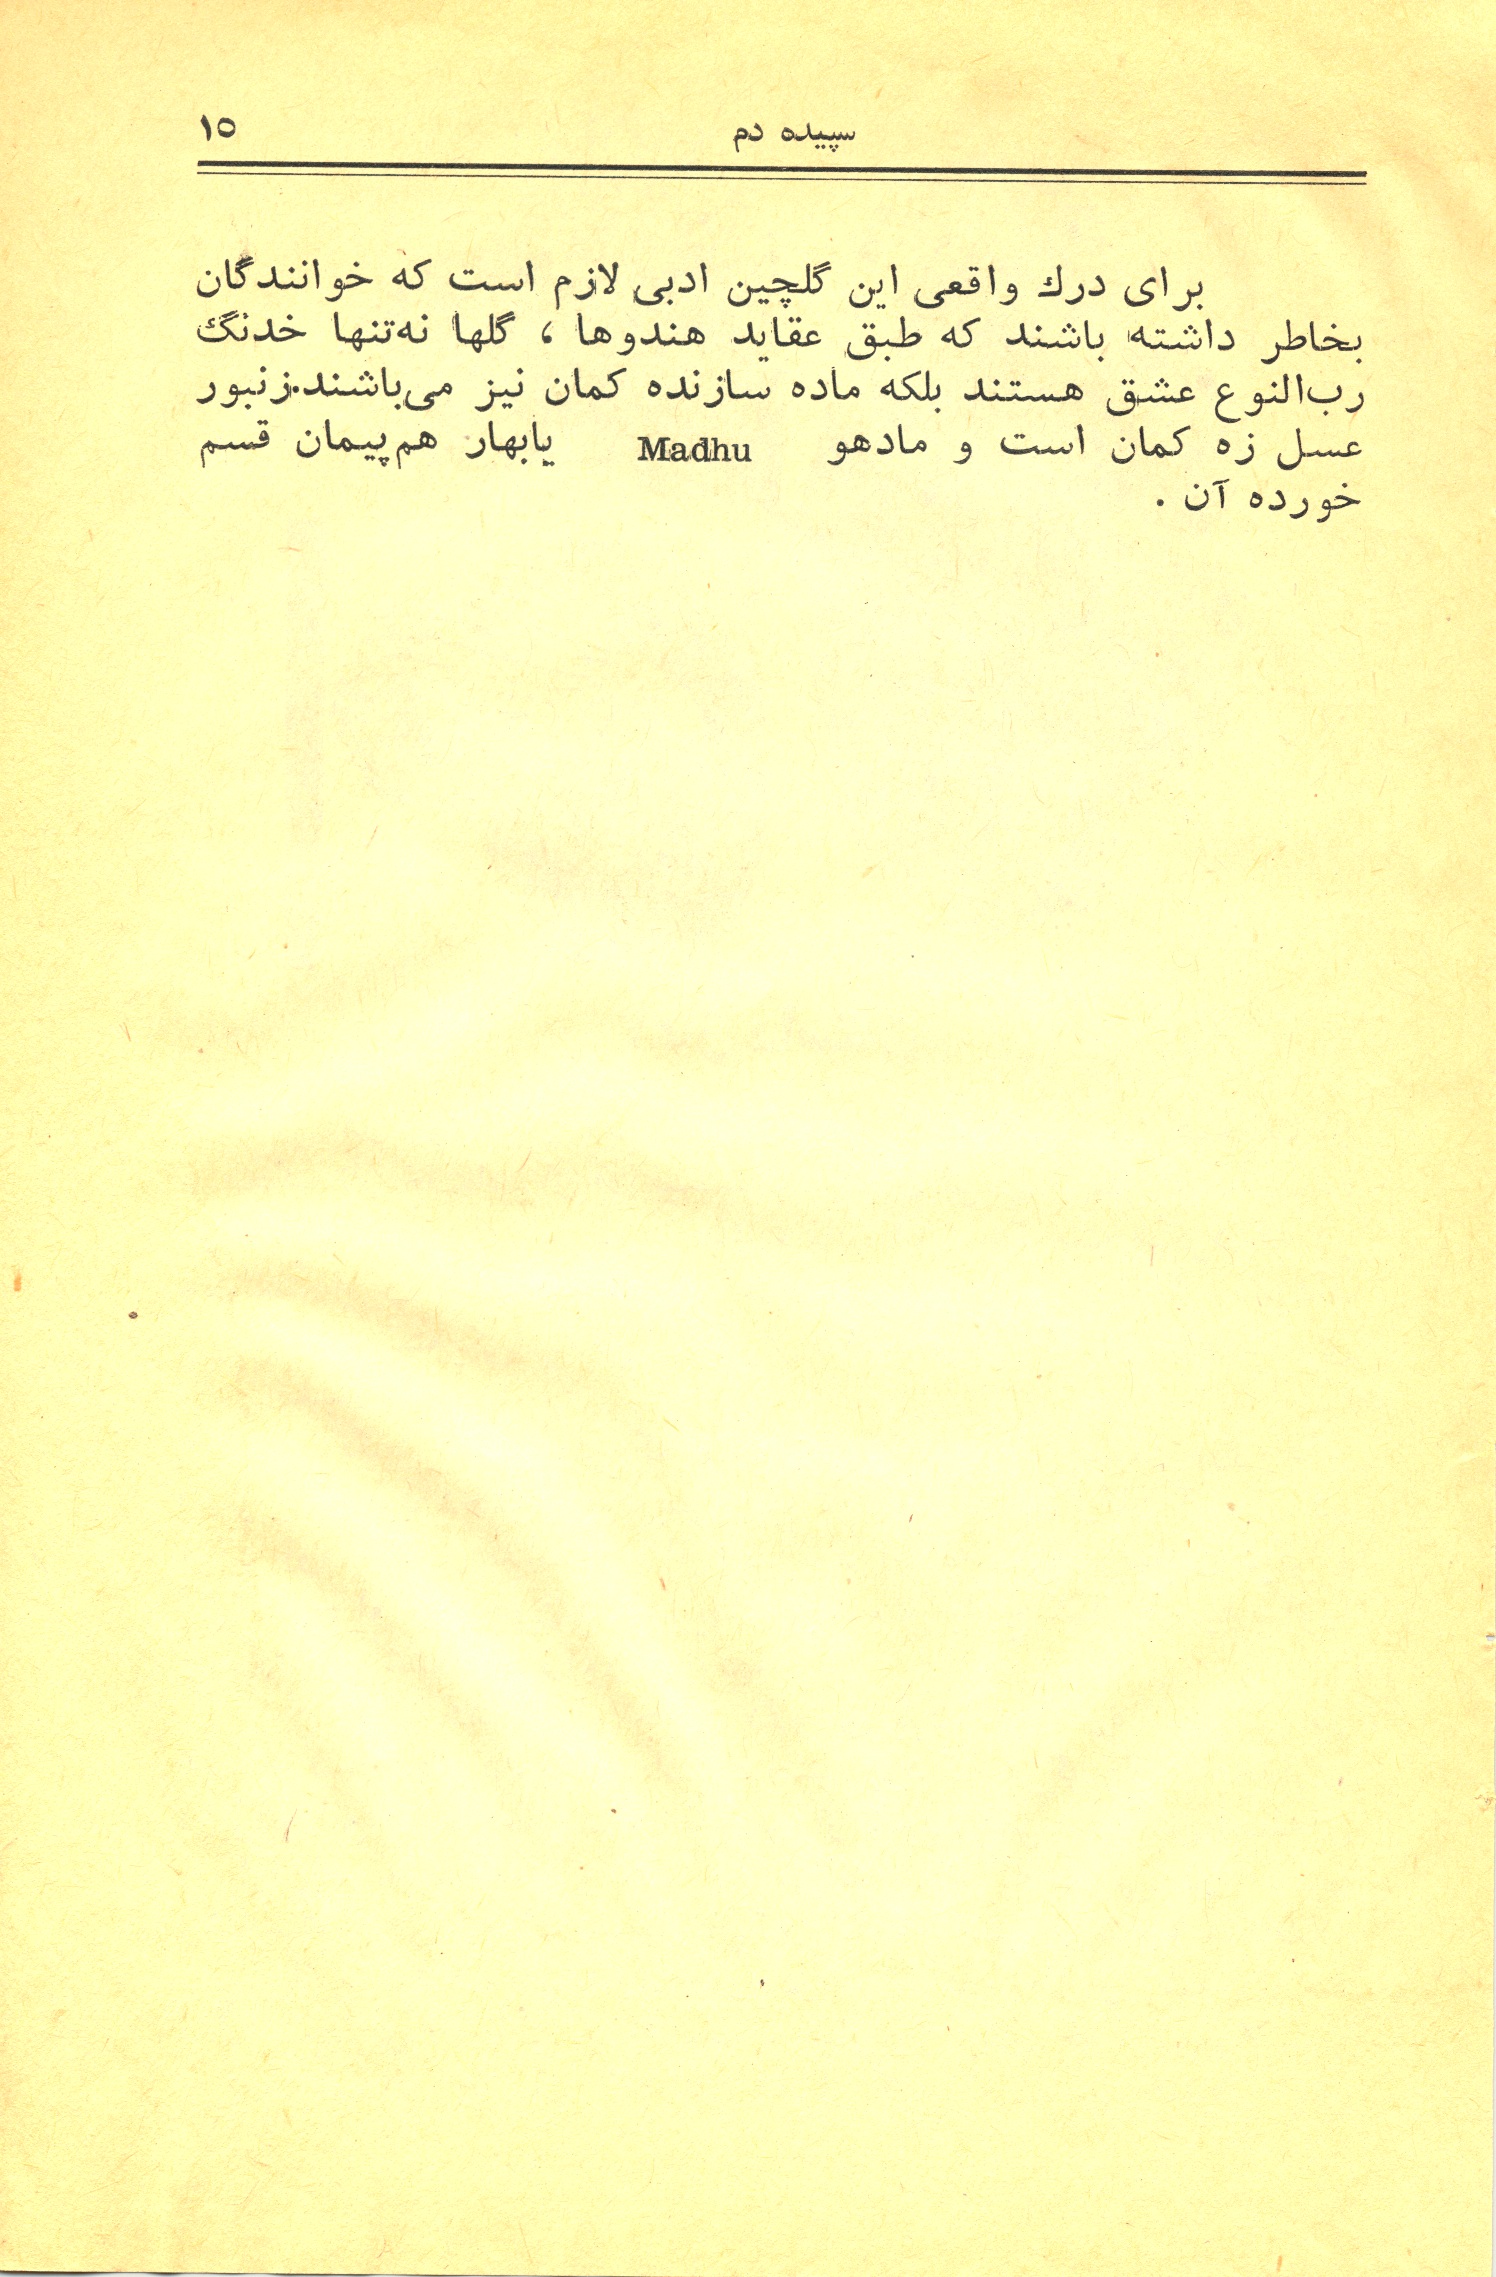 سپیده دم ۱۵
برای درك واقعی این گلچین ادبی لازم است که خوانندگان
بخاطر داشته باشند که طبق عقاید هندوها ، گلها نه‌تنها خدنگ
رب‌النوع عشق هستند بلکه ماده سازنده کمان نیز می‌باشند.زنبور
عسل زه کمان است و مادهو Madhu یابهار هم‌پیمان قسم
خورده آن .